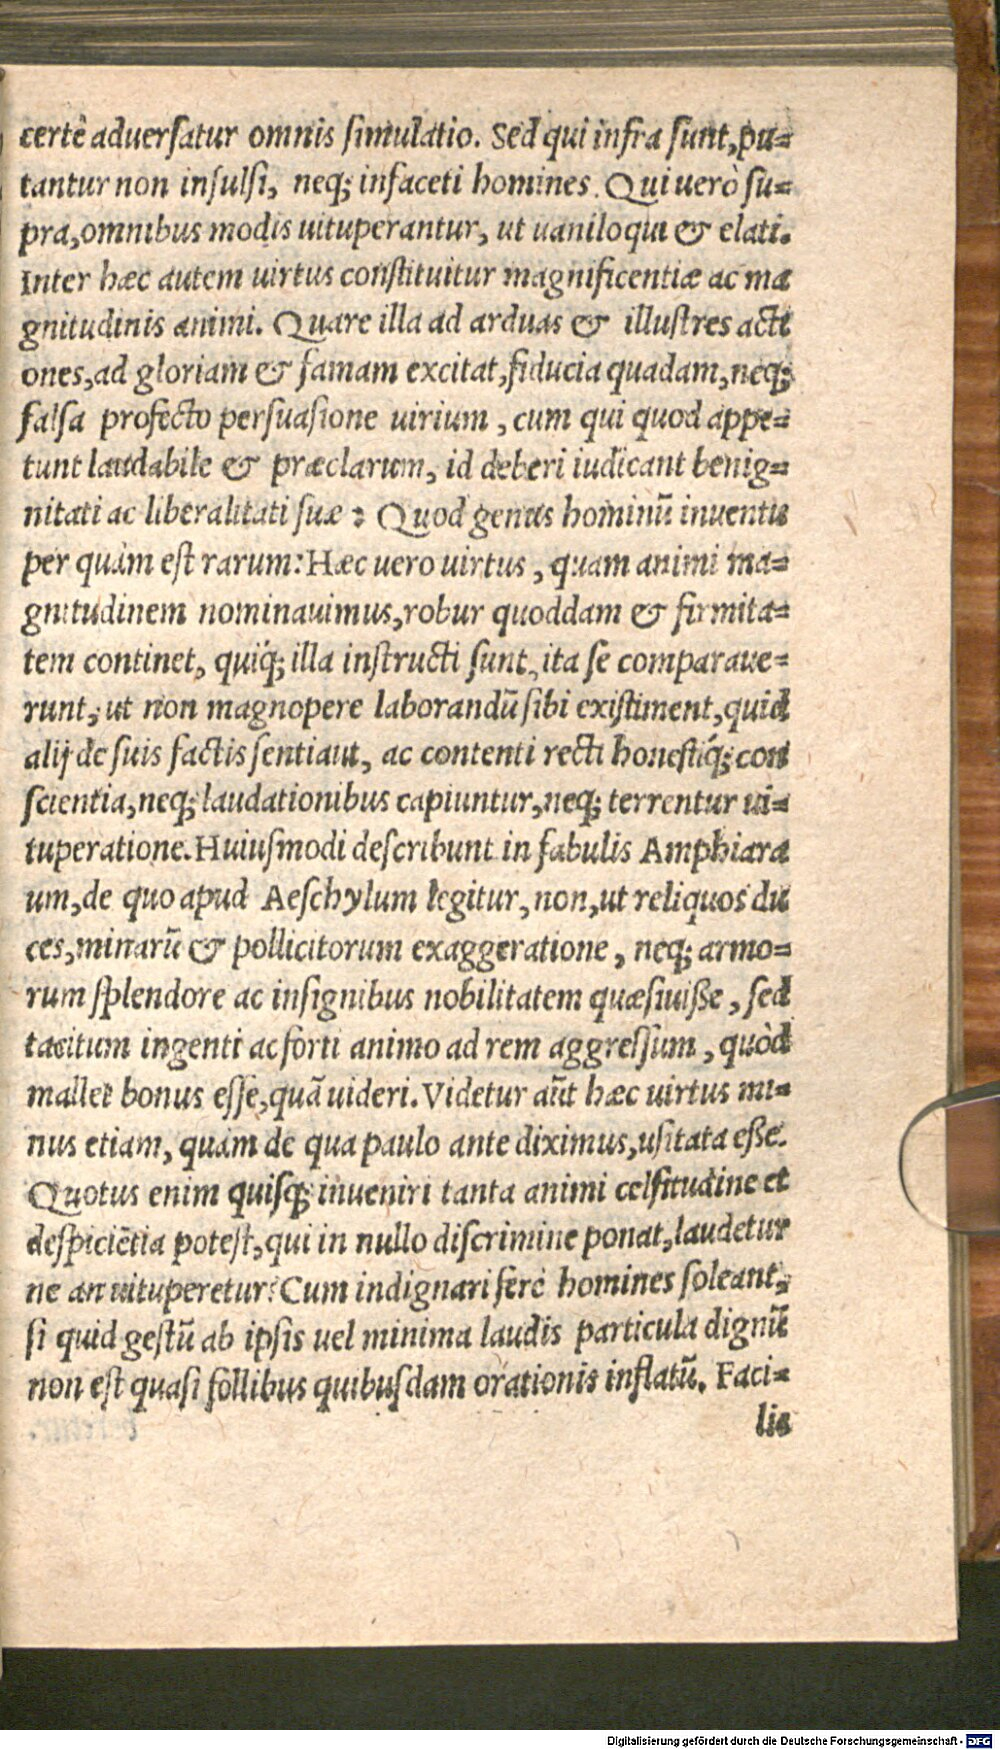 certè aduersatur omnis simulatio. Sed qui infra sunt, pu-
tantur non insulsi, neq; infaceti homines. Qui uerò su-
pra, omnibus modis uituperantur, ut uaniloqui & elati.
Inter hæc autem uirtus constituitur magnificentiæ ac ma
gnitudinis animi. Quare illa ad arduas & illustres acti
ones, ad gloriam & famam excitat, fiducia quadam, neq;
falsa profecto persuasione uirium, cum qui quod appe-
tunt laudabile & præclarum, id deberi iudicant benig-
nitati ac liberalitati suæ: Quod genus hominũ inuentu
per quàm est rarum: Hæc uero uirtus, quam animi ma-
gnitudinem nominauimus, robur quoddam & firmita-
tem continet, quiq́; illa instructi sunt, ita se comparaue-
runt, ut non magnopere laborandũ sibi existiment, quid
alij de suis factis sentiant, ac contenti recti honestiq́; con
scientia, neq; laudationibus capiuntur, neq; terrentur ui-
tuperatione. Huiusmodi describunt in fabulis Amphiara
um, de quo apud Aeschylum legitur, non, ut reliquos du
ces, minarũ & pollicitorum exaggeratione, neq; armo-
rum splendore ac insignibus nobilitatem quæsiuisse, sed
tacitum ingenti ac forti animo ad rem aggressum, quòd
mallet bonus esse, quã uideri. Videtur aũt hæc uirtus mi-
nus etiam, quàm de qua paulo ante diximus, usitata esse.
Quotus enim quisq; inueniri tanta animi celsitudine et
despiciẽtia potest, qui in nullo discrimine ponat, laudetur
ne an uituperetur? Cum indignari ferè homines soleant,
si quid gestũ ab ipsis uel minima laudis particula dignũ
non est quasi follibus quibusdam orationis inflatũ. Faci-
lis
Digitalisierung gefördert durch die Deutsche Forschungsgemeinschaft - DFG